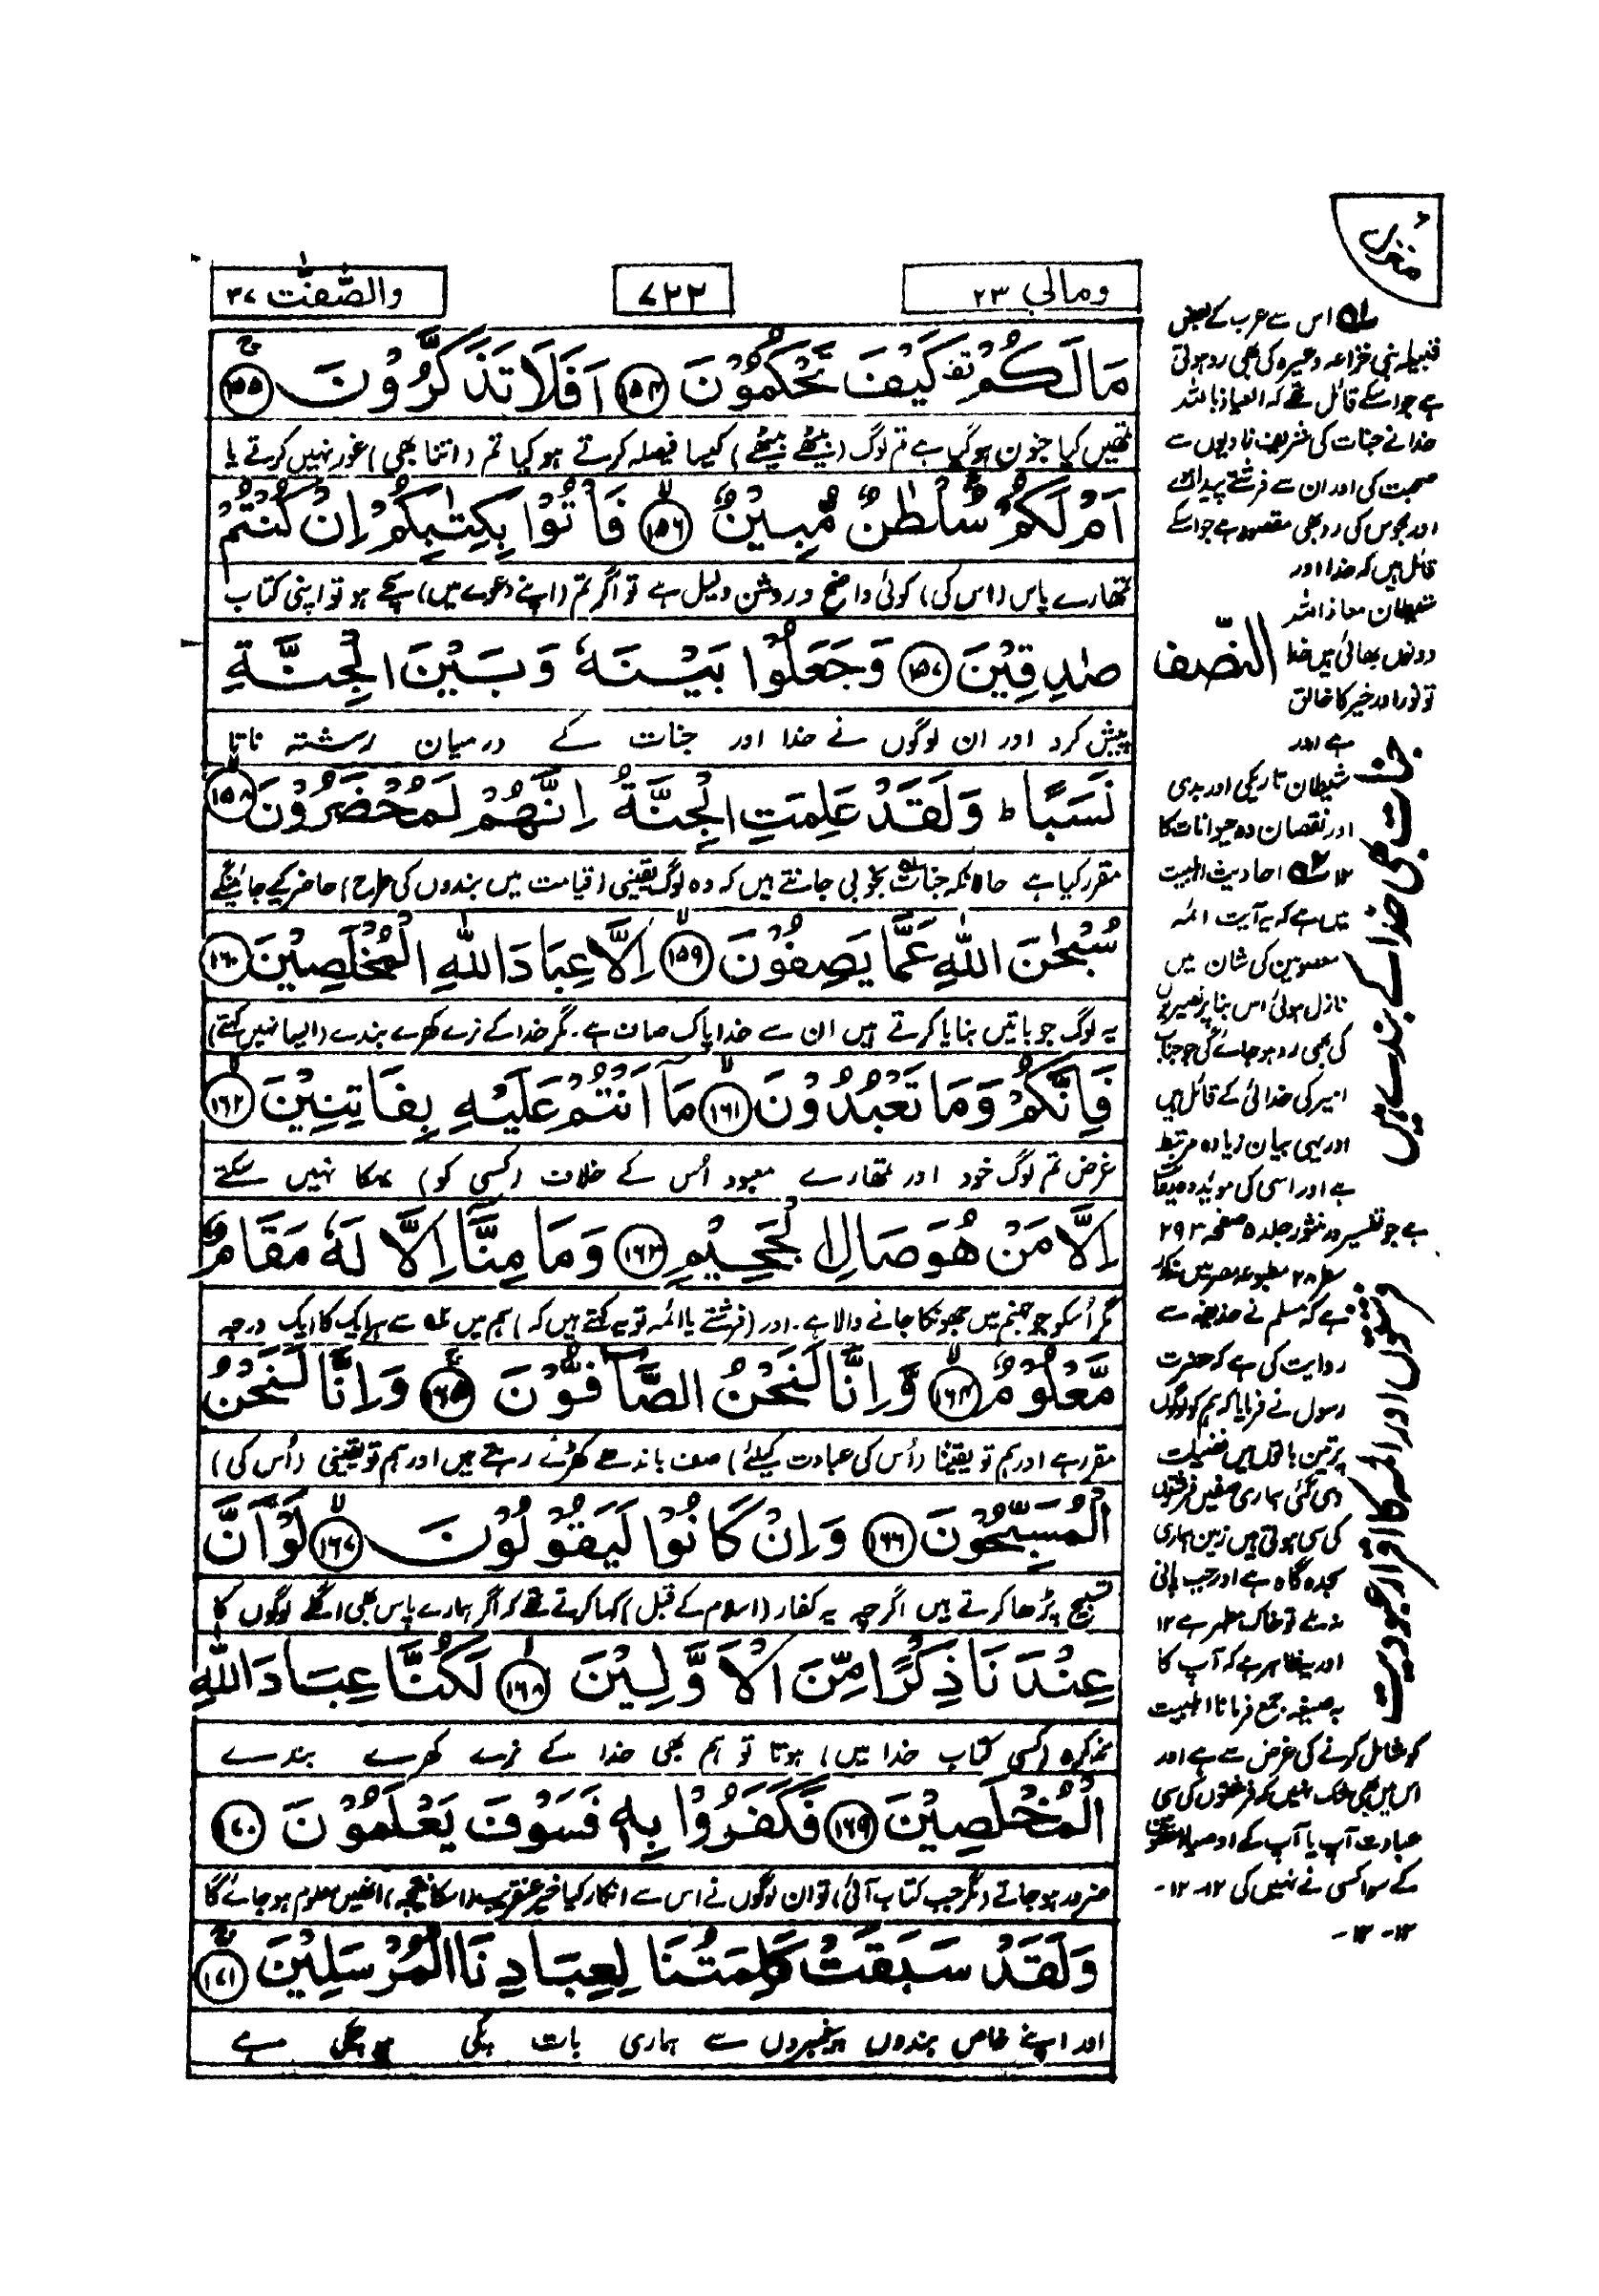 ومالی ۲۳
۷۲۲
والصّٰفّٰت ۳۷
مَا لَكُمْ كَيْفَ تَحْكُمُوْنَ ۝۱۵۴ اَفَلَا تَذَكَّرُوْنَ ۝۱۵۵
تمھیں کیا جنون ہو گیا ہے تم لوگ (بیٹھے بیٹھے) کیسا فیصلہ کرتے ہو کیا تم (اتنا بھی) غور نہیں کرتے یا
اَمْ لَكُمْ سُلْطٰنٌ مُّبِيْنٌ ۝۱۵۶ فَاْتُوْا بِكِتٰبِكُمْ اِنْ كُنْتُمْ
تمھارے پاس (اس کی) کوئی واضح و روشن دلیل ہے تو اگر تم (اپنے دعوے میں) سچے ہو تو اپنی کتاب
صٰدِقِيْنَ ۝۱۵۷ وَجَعَلُوْا بَيْنَهٗ وَبَيْنَ الْجِنَّةِ
پیش کرو اور ان لوگوں نے خدا اور جنات کے درمیان رشتہ ناتا
نَسَبًا ؕ وَلَقَدْ عَلِمَتِ الْجِنَّةُ اِنَّهُمْ لَمُحْضَرُوْنَ ۝۱۵۸
مقرر کیا ہے حالانکہ جنات بخوبی جانتے ہیں کہ وہ لوگ یقینی (قیامت میں بندوں کی طرح) حاضر کیے جائینگے
سُبْحٰنَ اللّٰهِ عَمَّا يَصِفُوْنَ ۝۱۵۹ اِلَّا عِبَادَ اللّٰهِ الْمُخْلَصِيْنَ ۝۱۶۰
یہ لوگ جو باتیں بنایا کرتے ہیں ان سے خدا پاک صاف ہے۔ مگر خدا کے نرے کھرے بندے (ایسا نہیں کہتے)
فَاِنَّكُمْ وَمَا تَعْبُدُوْنَ ۝۱۶۱ مَاۤ اَنْتُمْ عَلَيْهِ بِفَاتِنِيْنَ ۝۱۶۲
غرض تم لوگ خود اور تمھارے معبود اُس کے خلاف (کسی کو) بہکا نہیں سکتے
اِلَّا مَنْ هُوَ صَالِ الْجَحِيْمِ ۝۱۶۳ وَمَا مِنَّاۤ اِلَّا لَهٗ مَقَامٌ
مگر اُسکو جو جہنم میں جھونکا جانے والا ہے۔ اور (فرشتے یا ائمہ تو یہ کہتے ہیں کہ) ہم میں سے ہر ایک کا ایک درجہ
مَّعْلُوْمٌ ۝۱۶۴ وَّاِنَّا لَنَحْنُ الصَّآفُّوْنَ ۝۱۶۵ وَاِنَّا لَنَحْنُ
مقرر ہے اور ہم تو یقینًا (اُس کی عبادت کیلئے) صف باندھے کھڑے رہتے ہیں اور ہم تو یقینی (اُس کی)
الْمُسَبِّحُوْنَ ۝۱۶۶ وَاِنْ كَانُوْا لَيَقُوْلُوْنَ ۝۱۶۷ لَوْ اَنَّ
تسبیح پڑھا کرتے ہیں اگرچہ یہ کفار (اسلام کے قبل) کہا کرتے تھے کہ اگر ہمارے پاس بھی اگلے لوگوں کا
عِنْدَنَا ذِكْرًا مِّنَ الْاَوَّلِيْنَ ۝۱۶۸ لَكُنَّا عِبَادَ اللّٰهِ
تذکرہ (کسی کتاب خدا میں) ہوتا تو ہم بھی خدا کے نرے کھرے بندے
الْمُخْلَصِيْنَ ۝۱۶۹ فَكَفَرُوْا بِهٖ فَسَوْفَ يَعْلَمُوْنَ ۝۱۷۰
ضرور ہو جاتے (مگر جب کتاب آئی) تو ان لوگوں نے اس سے انکار کیا خیر عنقریب (اسکا نتیجہ) انھیں معلوم ہو جائے گا
وَلَقَدْ سَبَقَتْ كَلِمَتُنَا لِعِبَادِنَا الْمُرْسَلِيْنَ ۝۱۷۱
اور اپنے خاص بندوں پیغمبروں سے ہماری بات پکی ہو چکی ہے
اس سے عرب کے بعض
قبیلہ بنی خزاعہ وغیرہ کی بھی رد ہوتی
ہے جو اسکے قائل تھے کہ العیاذ باللہ
خدا نے جنات کی شریف زادیوں سے
صحبت کی اور ان سے فرشتے پیدا ہوئے
اور مجوس کی رد بھی مقصود ہے جو اسکے
قائل ہیں کہ خدا اور
شیطان معاذ اللہ
دونوں بھائی ہیں خدا
تو نور اور خیر کا خالق
ہے اور
شیطان تاریکی اور بدی
اور نقصان دہ حیوانات کا
۱۲ احادیث اہلبیت
میں ہے کہ یہ آیت ائمہ
معصومین کی شان میں
نازل ہوئی اس بنا پر نصیریوں
کی بھی رد ہو جائے گی جو جناب
امیر کی خدائی کے قائل ہیں
اور یہی بیان زیادہ مرتبط
ہے اور اسی کی مؤید وہ
ہے جو تفسیر در منثور جلد ۵ صفحہ ۲۹۳
سطر ۲۸ مطبوعہ مصر میں
ہے کہ مسلم نے حذیفہ سے
روایت کی ہے کہ حضرت
رسول نے فرمایا کہ ہم کو لوگوں
پر تین باتوں میں فضیلت
دی گئی ہماری صفیں فرشتوں
کی سی ہوتی ہیں زمین ہماری
سجدہ گاہ ہے اور جب پانی
نہ ملے تو خاک مطہر ہے ۱۲
اور یہ ظاہر ہے کہ آپ کا
بہ صیغہ جمع فرمانا اہلبیت
کو شامل کرنے کی غرض سے ہے اور
اس میں بھی شک نہیں کہ فرشتوں کی سی
عبادت آپ یا آپ کے اوصیاء
کے سوا کسی نے نہیں کی ۱۲۔ ۱۲۔
۱۲۔ ۱۲۔
النّصف
جنات بھی خدا کے بندے ہیں
فرشتوں اور ائمہ کا اقرار عبودیت